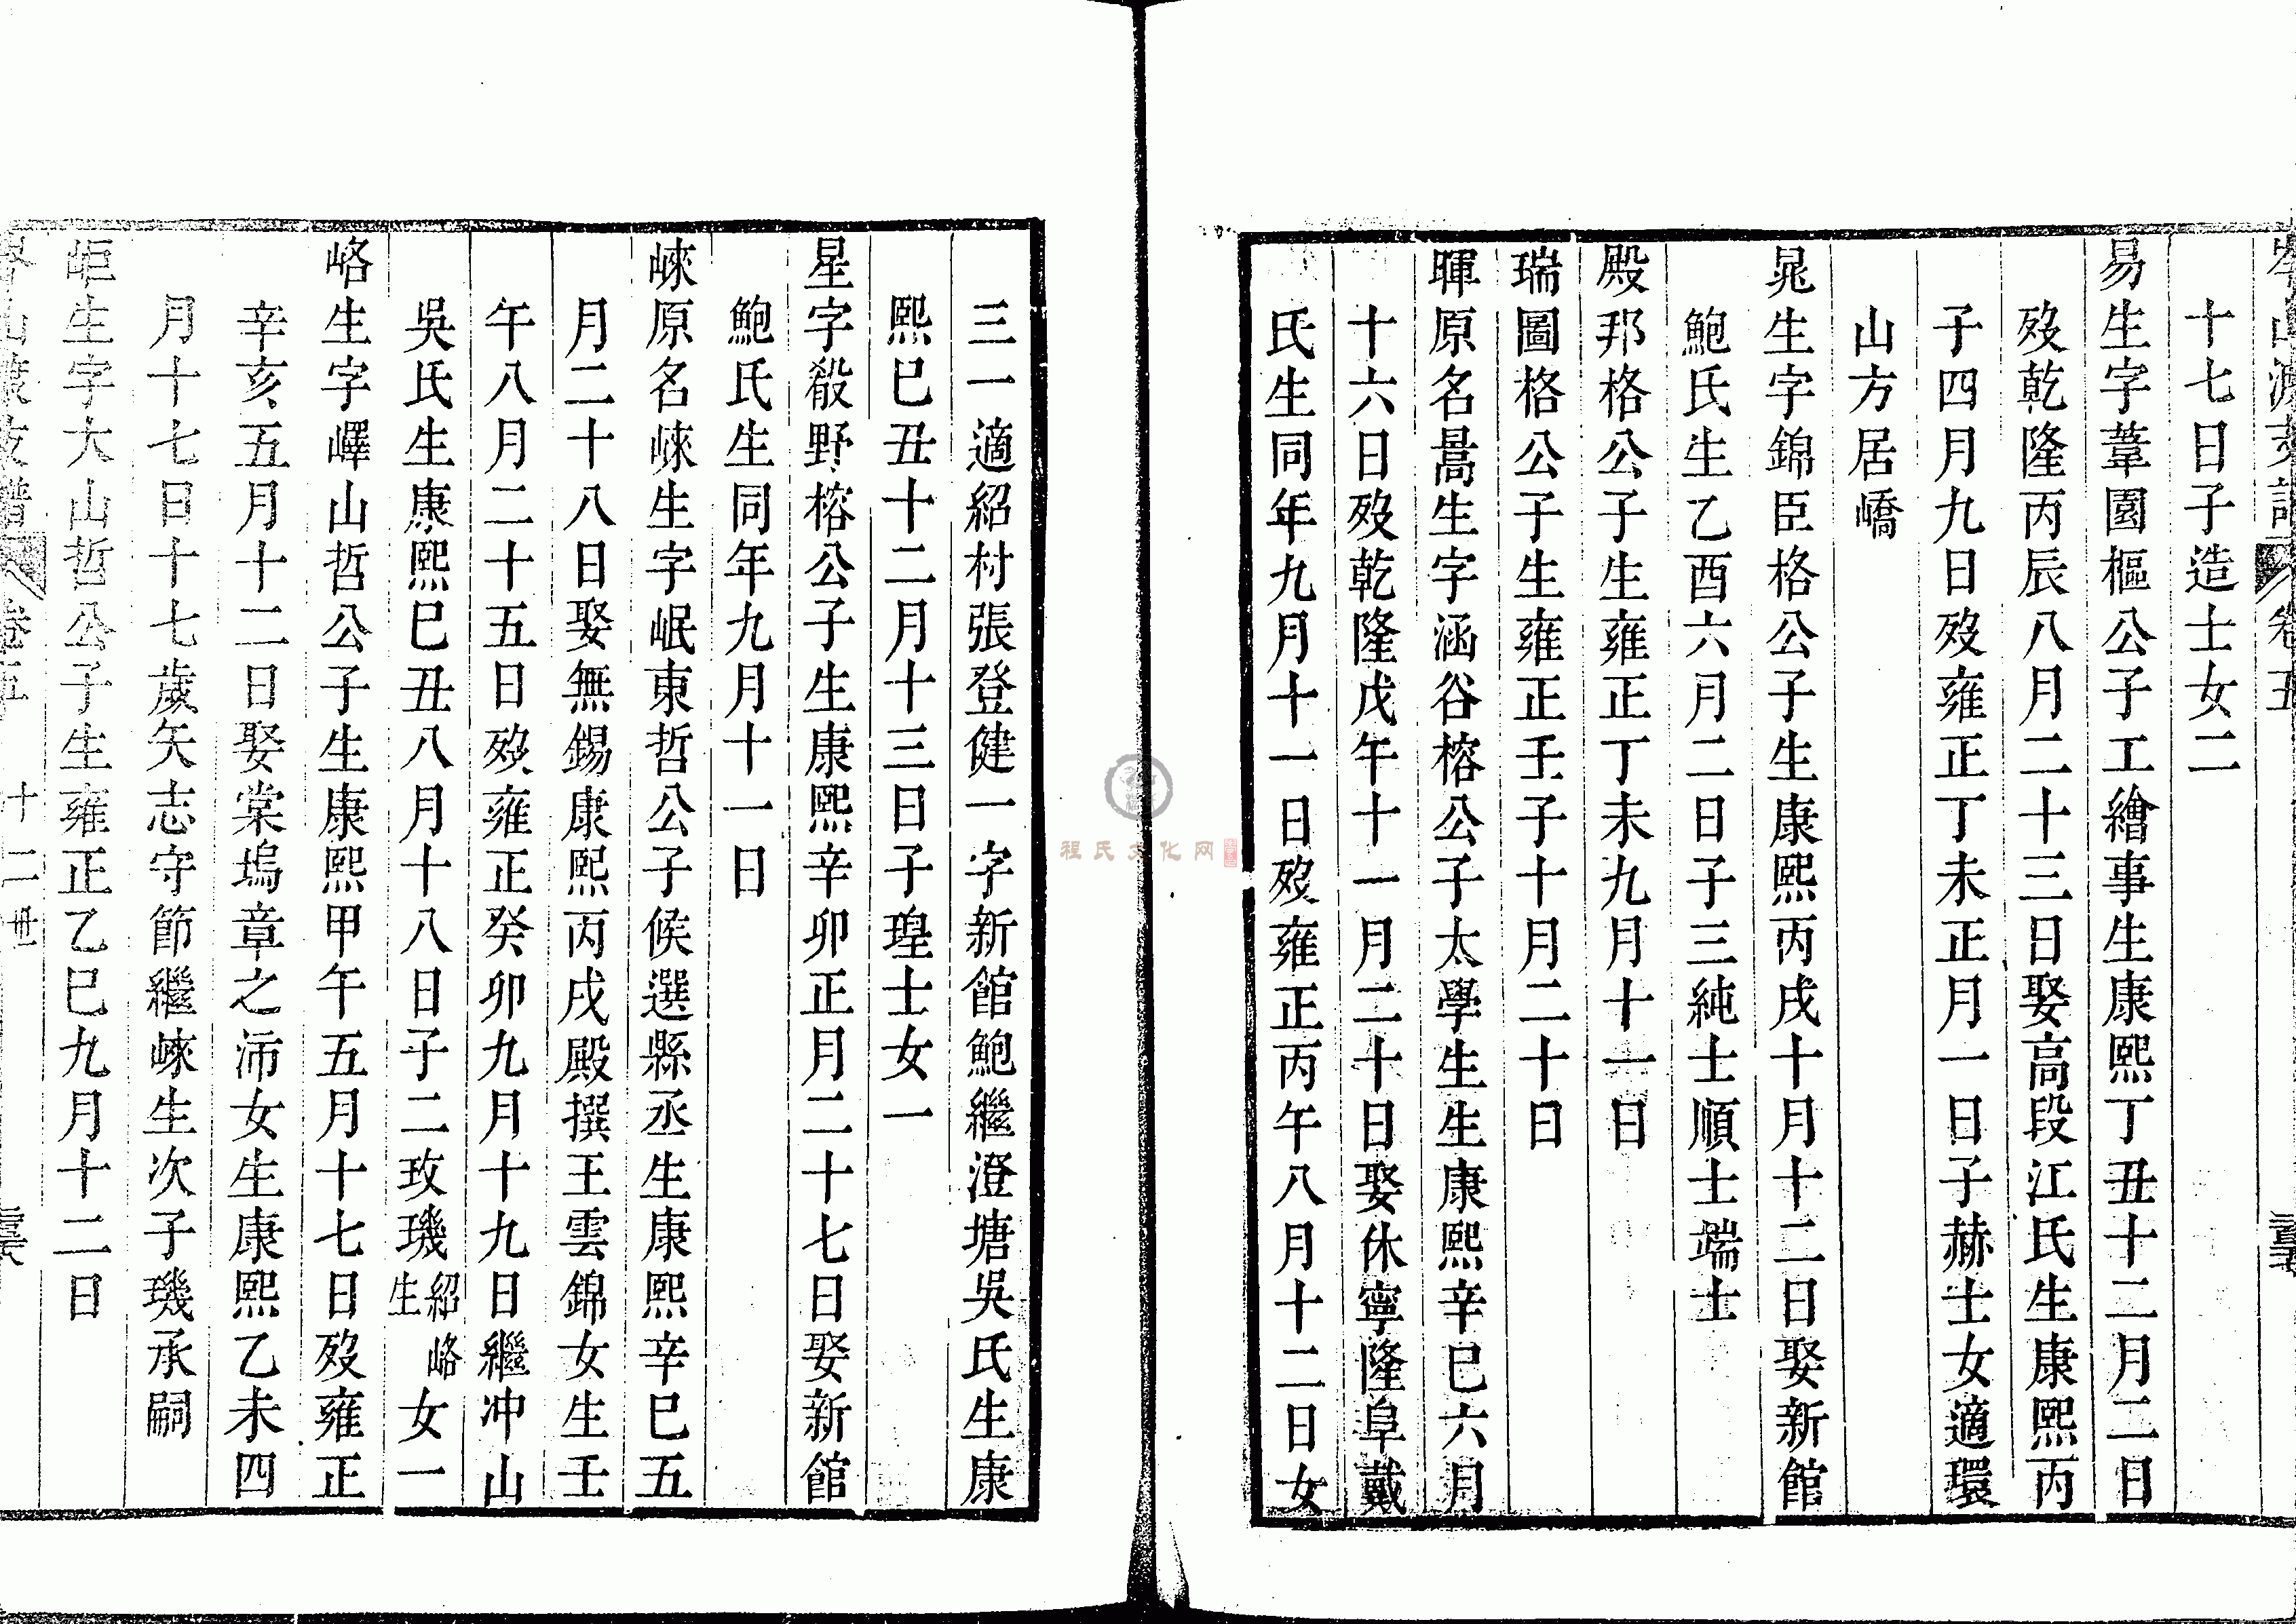 十七日子造士女二
易生字葦園樞公子工繪事生康熙丁丑十二月二日
歿乾隆丙辰八月二十三日娶高段江氏生康熙丙
子四月九日歿雍正丁未正月一日子赫士女適環
山方居嶠
晃生字錦臣格公子生康熙丙戌十月十二日娶新館
鮑氏生乙酉六月二日子三純士順士端士
殿邦格公子生雍正丁未九月十一日
瑞圖格公子生雍正壬子十月二十日
暉原名暠生字涵谷榕公子太學生生康熙辛巳六月
十六日歿乾隆戊午十一月二十日娶休寧隆阜戴
氏生同年九月十一日歿雍正丙午八月十二日女
三一適紹村張登健一字新館鮑繼澄塘吳氏生康
熙巳丑十二月十三日子瑝士女一
星字殽野榕公子生康熙辛卯正月二十七日娶新館
鮑氏生同年九月十一日
崍原名崍生字岷東哲公子候選縣丞生康熙辛巳五
月二十八日娶無錫康熙丙戌殿撰王雲錦女生壬
午八月二十五日歿雍正癸卯九月十九日繼冲山
吳氏生康熙巳丑八月十八日子二玫璣紹峈生女一
峈生字嶧山哲公子生康熙甲午五月十七日歿雍正
辛亥五月十二日娶棠塢章之沛女生康熙乙未四
月十七日十七歲矢志守節繼崍生次子璣承嗣
岠生字大山哲公子生雍正乙巳九月十二日
卷五 十二世
程氏文化网